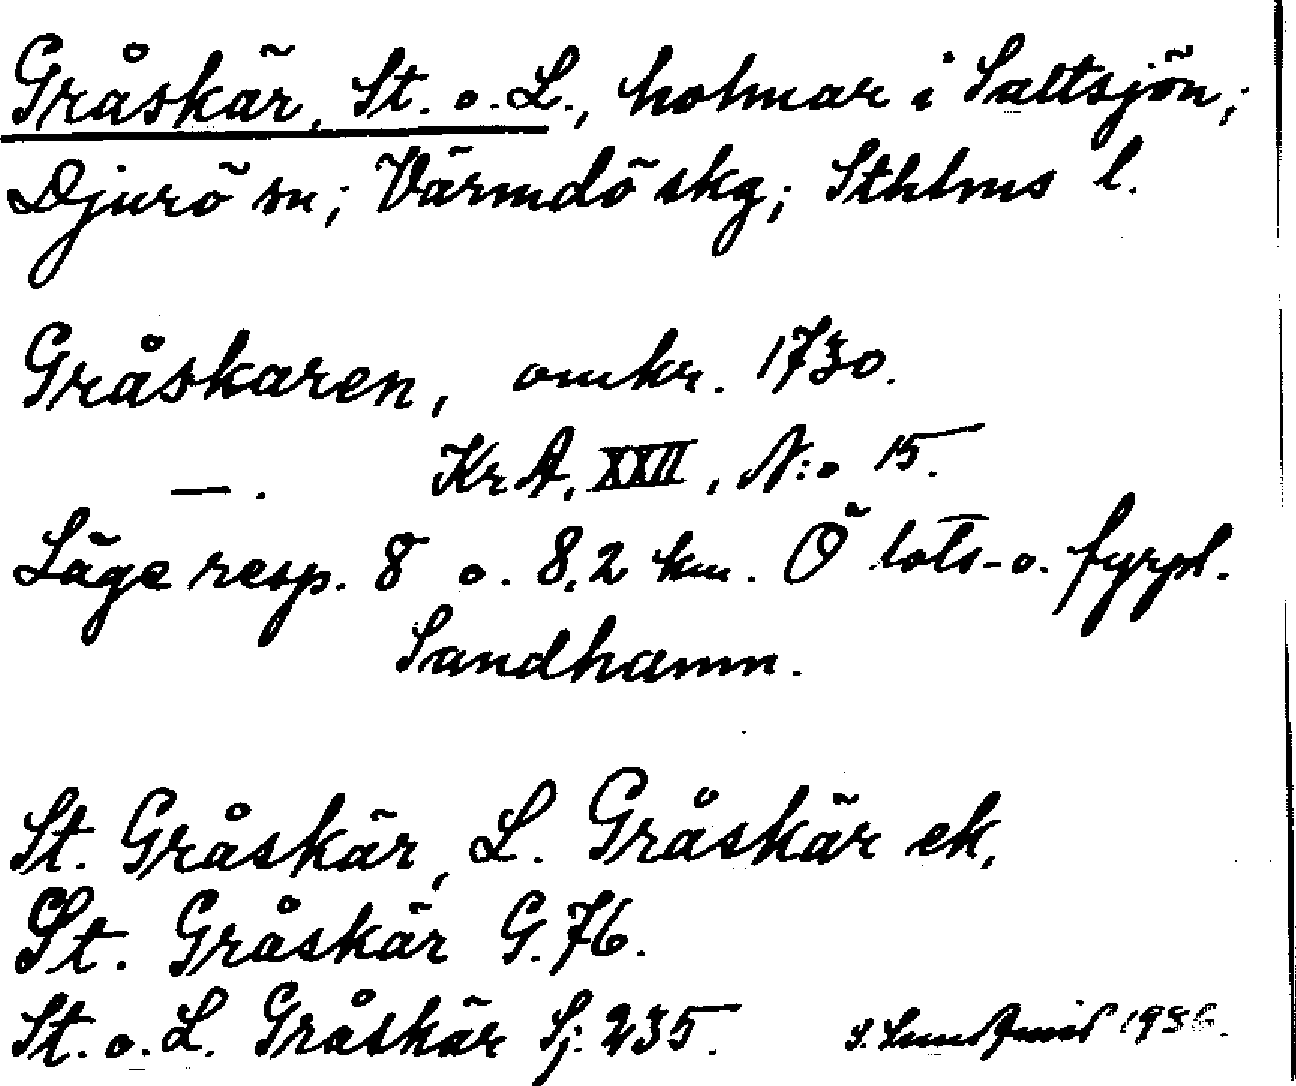 Gråskär, St. o. L., holmar i Saltsjön;
Djurö sn; Värmdö skg; Sthlms l.
Gråskaren, omkr. 1730.
—. KrA, XXII, N:o 15.
Läge resp. 8 o. 8,2 km. Ö lots- o. fyrpl.
Sandhamn.
St. Gråskär, L. Gråskär ek.
St. Gråskär G. 76.
St. o. L. Gråskär Sj. 235.
S. Lundqvist 1936.